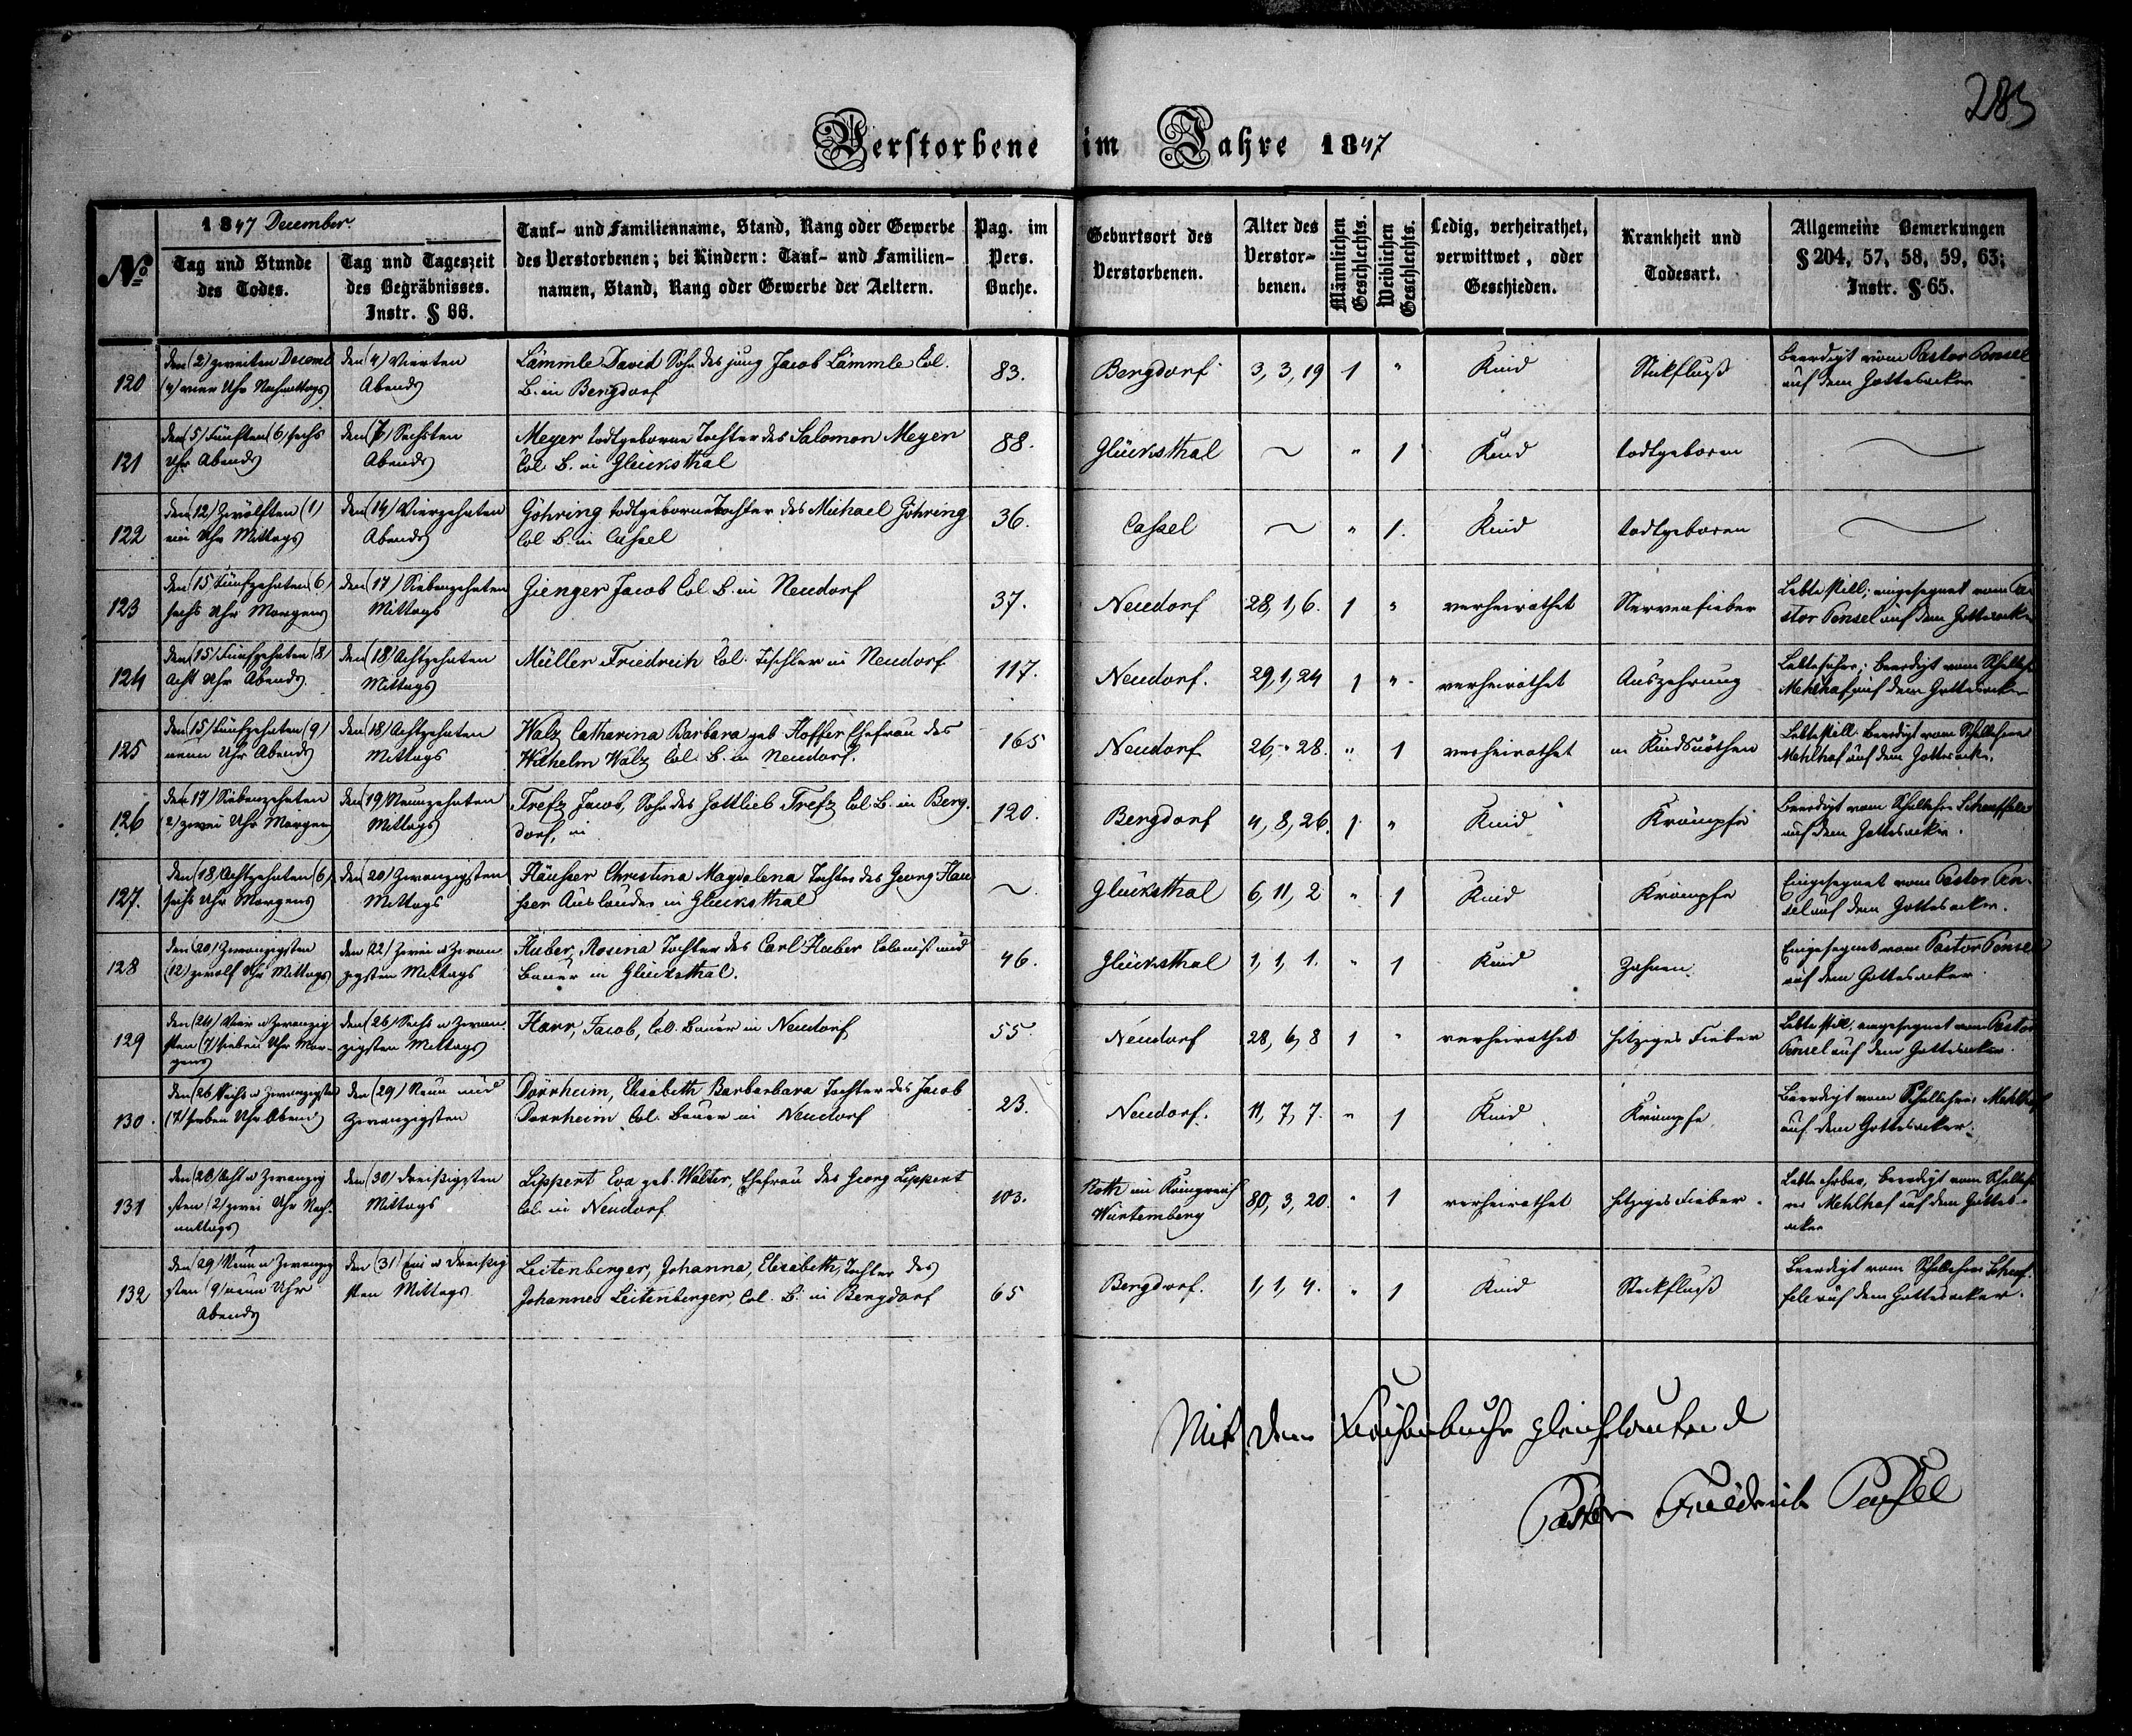 285
Verstorbene im Jahre 1847
№
1847 December.
Tag und Stunde
des Todes.
Tag und Tageszeit
des Begräbnisses.
Instr. § 66.
Tauf- und Familienname, Stand, Rang oder Gewerbe
des Verstorbenen; bei Kindern: Tauf- und Familien-
namen, Stand, Rang oder Gewerbe der Aeltern.
Pag. im
Pers.
Buche.
Geburtsort des
Verstorbenen.
Alter des
Verstor-
benen.
Männlichen
Geschlechts.
Weiblichen
Geschlechts.
Ledig, verheirathet,
verwittwet, oder
Geschieden.
Krankheit und
Todesart.
Allgemeine Bemerkungen
§ 204, 57, 58, 59, 63;
Instr. § 65.
120
den (2) zweiten Decemb
(4) vier Uhr Nachmittags
den (4) Vierten
Abends
Lämmle David Sohn des jung Jacob Lämmle Col.
B. in Bergdorf
83.
Bergdorf
3, 3, 19
1
"
Kind
Stickfluß
Beerdigt vom Pastor Pensel
auf dem Gottesacker
121
den (5) Fünften (6) sechs
Uhr Abends
den Sechsten
Abends
Meyer todtgeborne Tochter des Salomon Meyer
Col. B. in Glücksthal
88.
Glücksthal
~
"
1
Kind
todtgeboren
122
den (12) Zwölften (1)
ein Uhr Mittags
den (14) Vierzehnten
Abends
Göhring todtgeborne Tochter des Michael Göhring
Col B. in Cassel
36.
Cassel
~
"
1.
Kind
todtgeboren
123
den (15 Fünfzehnten (6)
sechs Uhr Morgens
den (17) Siebenzehnten
Mittags
Gienger Jacob Col. B. in Neudorf
37.
Neudorf
28, 1, 6.
1
"
verheirathet
Nervenfieber
Lebte still; eingesegnet vom Pa-
stor Pensel auf dem Gottesacker
124
den (15) Fünfzehnten (8)
Acht Uhr Abends.
den (18) Achtzehnten
Mittags
Müller Friedreich Col. Tischler in Neudorf
117.
Neudorf.
29, 1, 24
1
"
verheirathet
Auszehrung
Beerdigt vom
Mehlhaf auf dem Gottesacker
125
den (15) Fünfzehnten (9)
neun Uhr Abends
den (18) Achtzehnten
Mittags
Walz Catharina Barbara geb. Hoffer Ehefrau des
Wilhelm Walz Col. B. in Neudorf.
165
Neudorf
26, - 28.
"
1
verheirathet
in Kindsnöthen
Lebte still. Beerdigt vom Schullehrer
Mehlhaf auf dem Gottesacker.
126
den (17) Siebenzehnten
(2) zwei Uhr Morgens
den (19) Neunzehnten
Mittags
Trefz Jacob, Sohn des Gottlieb Trefz Col. B. in Berg.
dorf, in
120.
Bergdorf
4, 8, 26.
1
"
Kind
Krämpfe
Beerdigt vom Schullehrer Scheuffele
auf dem Gottesacker.
127.
den (18) Achtzehnten (6)
sechs Uhr Morgens
den (20) Zwanzigsten
Mittags
Häusser Christina Magdalena Tochter des Georg Häu
sser Ausländer in Glücksthal
~
Glücksthal
6, 11, 2
"
1
Kind
Krämpfe
Eingesegnet vom Pastor Pen-
sel auf dem Gottesacker.
128
den (20) Zwanzigsten
(12) zwölf Uhr Mittags
den (22) Zwei u Zwan
zigsten Mittags
Huber, Rosina Tochter des Carl Huber Colonist und
Bauer in Glücksthal.
46.
Glücksthal
1, 1, 1.
"
1
Kind
Zahnen
Eingesegnet vom Pastor Pensel
auf dem Gottesacker.
129
den (24) Vier u Zwanzig
sten (7) sieben Uhr Mor-
gens
den (26) Sechs u Zwan.
zigsten Mittags
Harr, Jacob, Col. Bauer in Neudorf
55.
Neudorf
28, 6, 8
1
"
verheirathet
hitziges Fieber
Lebte still, eingesegnet vom Pastor
Pensel auf dem Gottesacker.
130.
den (26 Sechs u Zwanzigsten
(7) sieben Uhr Abend
den (29) Neun und
Zwanzigsten
Dorrheim, Elisabeth Barbarbara Tochter des Jacob
Dorrheim Col. Bauer in Neudorf
23.
Neudorf.
11, 7, 7.
"
1
Kind
Krämpfe
Beerdigt vom Schullehrer Mehlhaf
auf dem Gottesacker.
131
den (28) Acht u Zwanzig
sten (2) zwei Uhr Nach-
mittags
den (30) Dreißigsten
Mittags
Lippert Eva geb. Walter, Ehefrau des Georg Lippert
Col. in Neudorf
103.
Roth im Königreich
Würtemberg
80, 3, 20.
"
1
verheirathet
hitziges Fieber.
Lebte ehrbar, Beerdigt vom Schulleh-
rer Mehlhaf auf dem Gottes-
acker
132
den (29 Neun u Zwanzig
sten (9) neun Uhr
Abends
den (31) Ein u Dreißig
sten Mittags
Leitenberger, Johanna, Elisabeth, Tochter des
Johannes Leitenberger, Col. B. in Bergdorf
65
Bergdorf.
1, 1, 4.
"
1
Kind
Stickfluß
Beerdigt vom Schullehrer Scheuf-
fele auf dem Gottesacker.
Mit dem Kirchenbuche gleichlautend
Pastor Friedrich Pensel